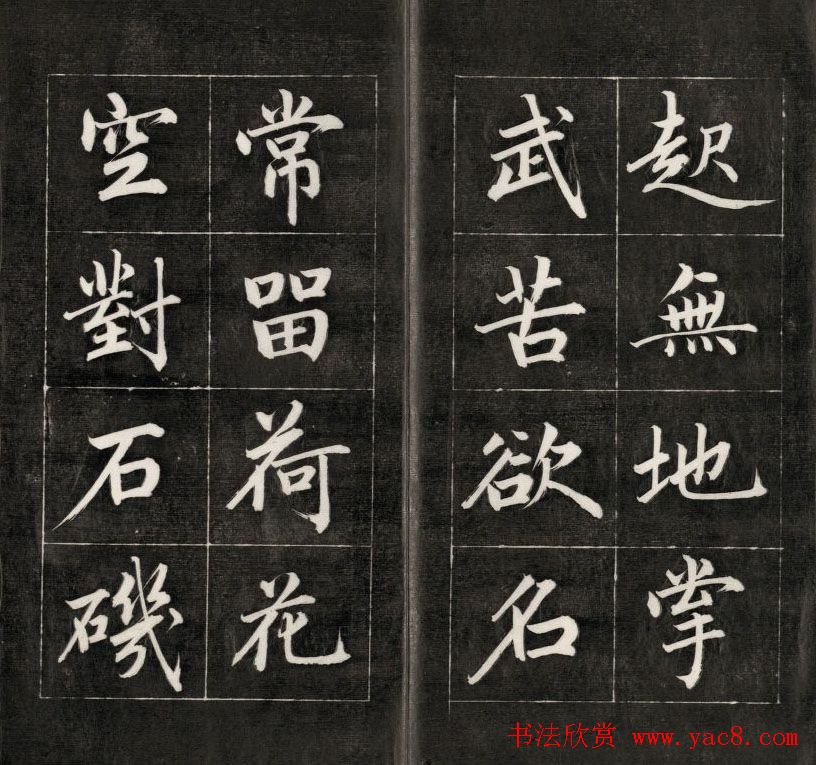 起無地掌
武苦欲名
常留荷花
空對石磯
书法欣赏 www.yac8.com